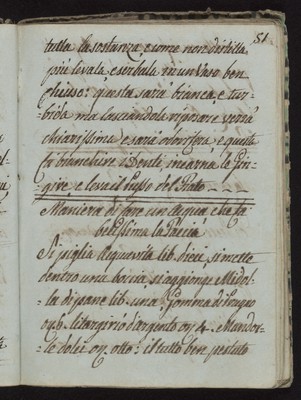 51
tutta la sostanza, e come non distilla
più levala, e serbala in un Vaso ben
chiuso: questa sarà bianca, e tur-
bida ma lasciandola riposare verrà
chiarissima, e sarà odorifera, e questa
fa bianchire i Denti, incarna le Gin-
give, e leva il Puzzo del Fiato
Maniera di fare un Acqua che fa
bellissima la Faccia
Si piglia Acquavita lib. dieci, si mette
dentro una boccia, s'aggionge Midol-
la di pane lib. una, Gomma di Prugno
on. 6. litargirio d'argento on. 4. Mandor-
le dolci on. otto: il tutto bene pestato